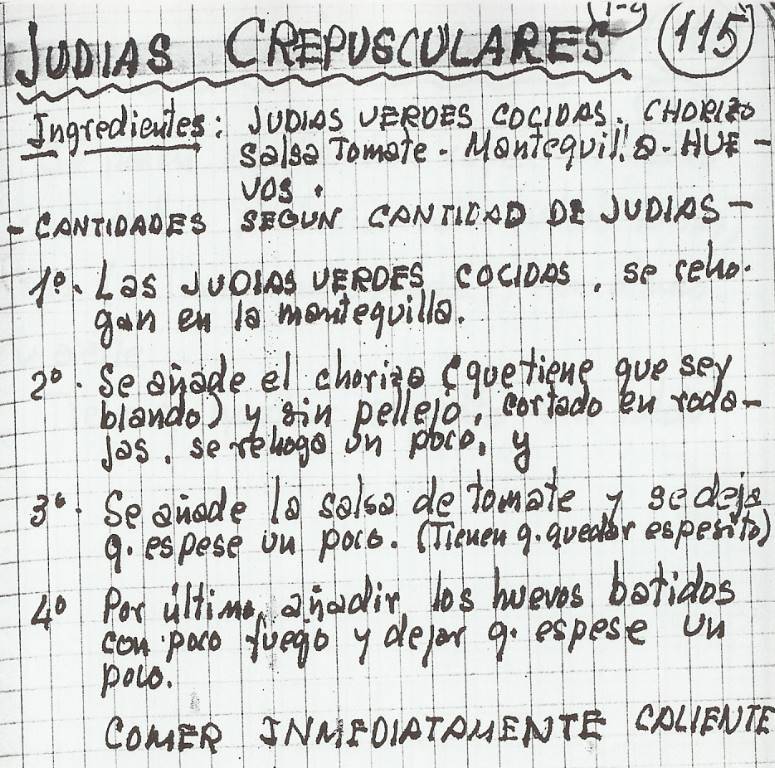 JUDIAS CREPUSCULARES 115
Ingredientes: JUDIAS VERDES COCIDAS. CHORIZO
Salsa Tomate - Mantequilla - HUE-
VOS.
- CANTIDADES SEGUN CANTIDAD DE JUDIAS -
1º. Las JUDIAS VERDES COCIDAS, se reho-
gan en la mantequilla.
2º. Se añade el chorizo (que tiene que ser
blando) y sin pellejo, cortado en roda-
jas, se rehoga un poco, y
3º. Se añade la salsa de tomate y se deja
q. espese un poco. (Tienen q. quedar espesito)
4º Por último, añadir los huevos batidos
con poco fuego y dejar q. espese un
poco.
COMER INMEDIATAMENTE CALIENTE